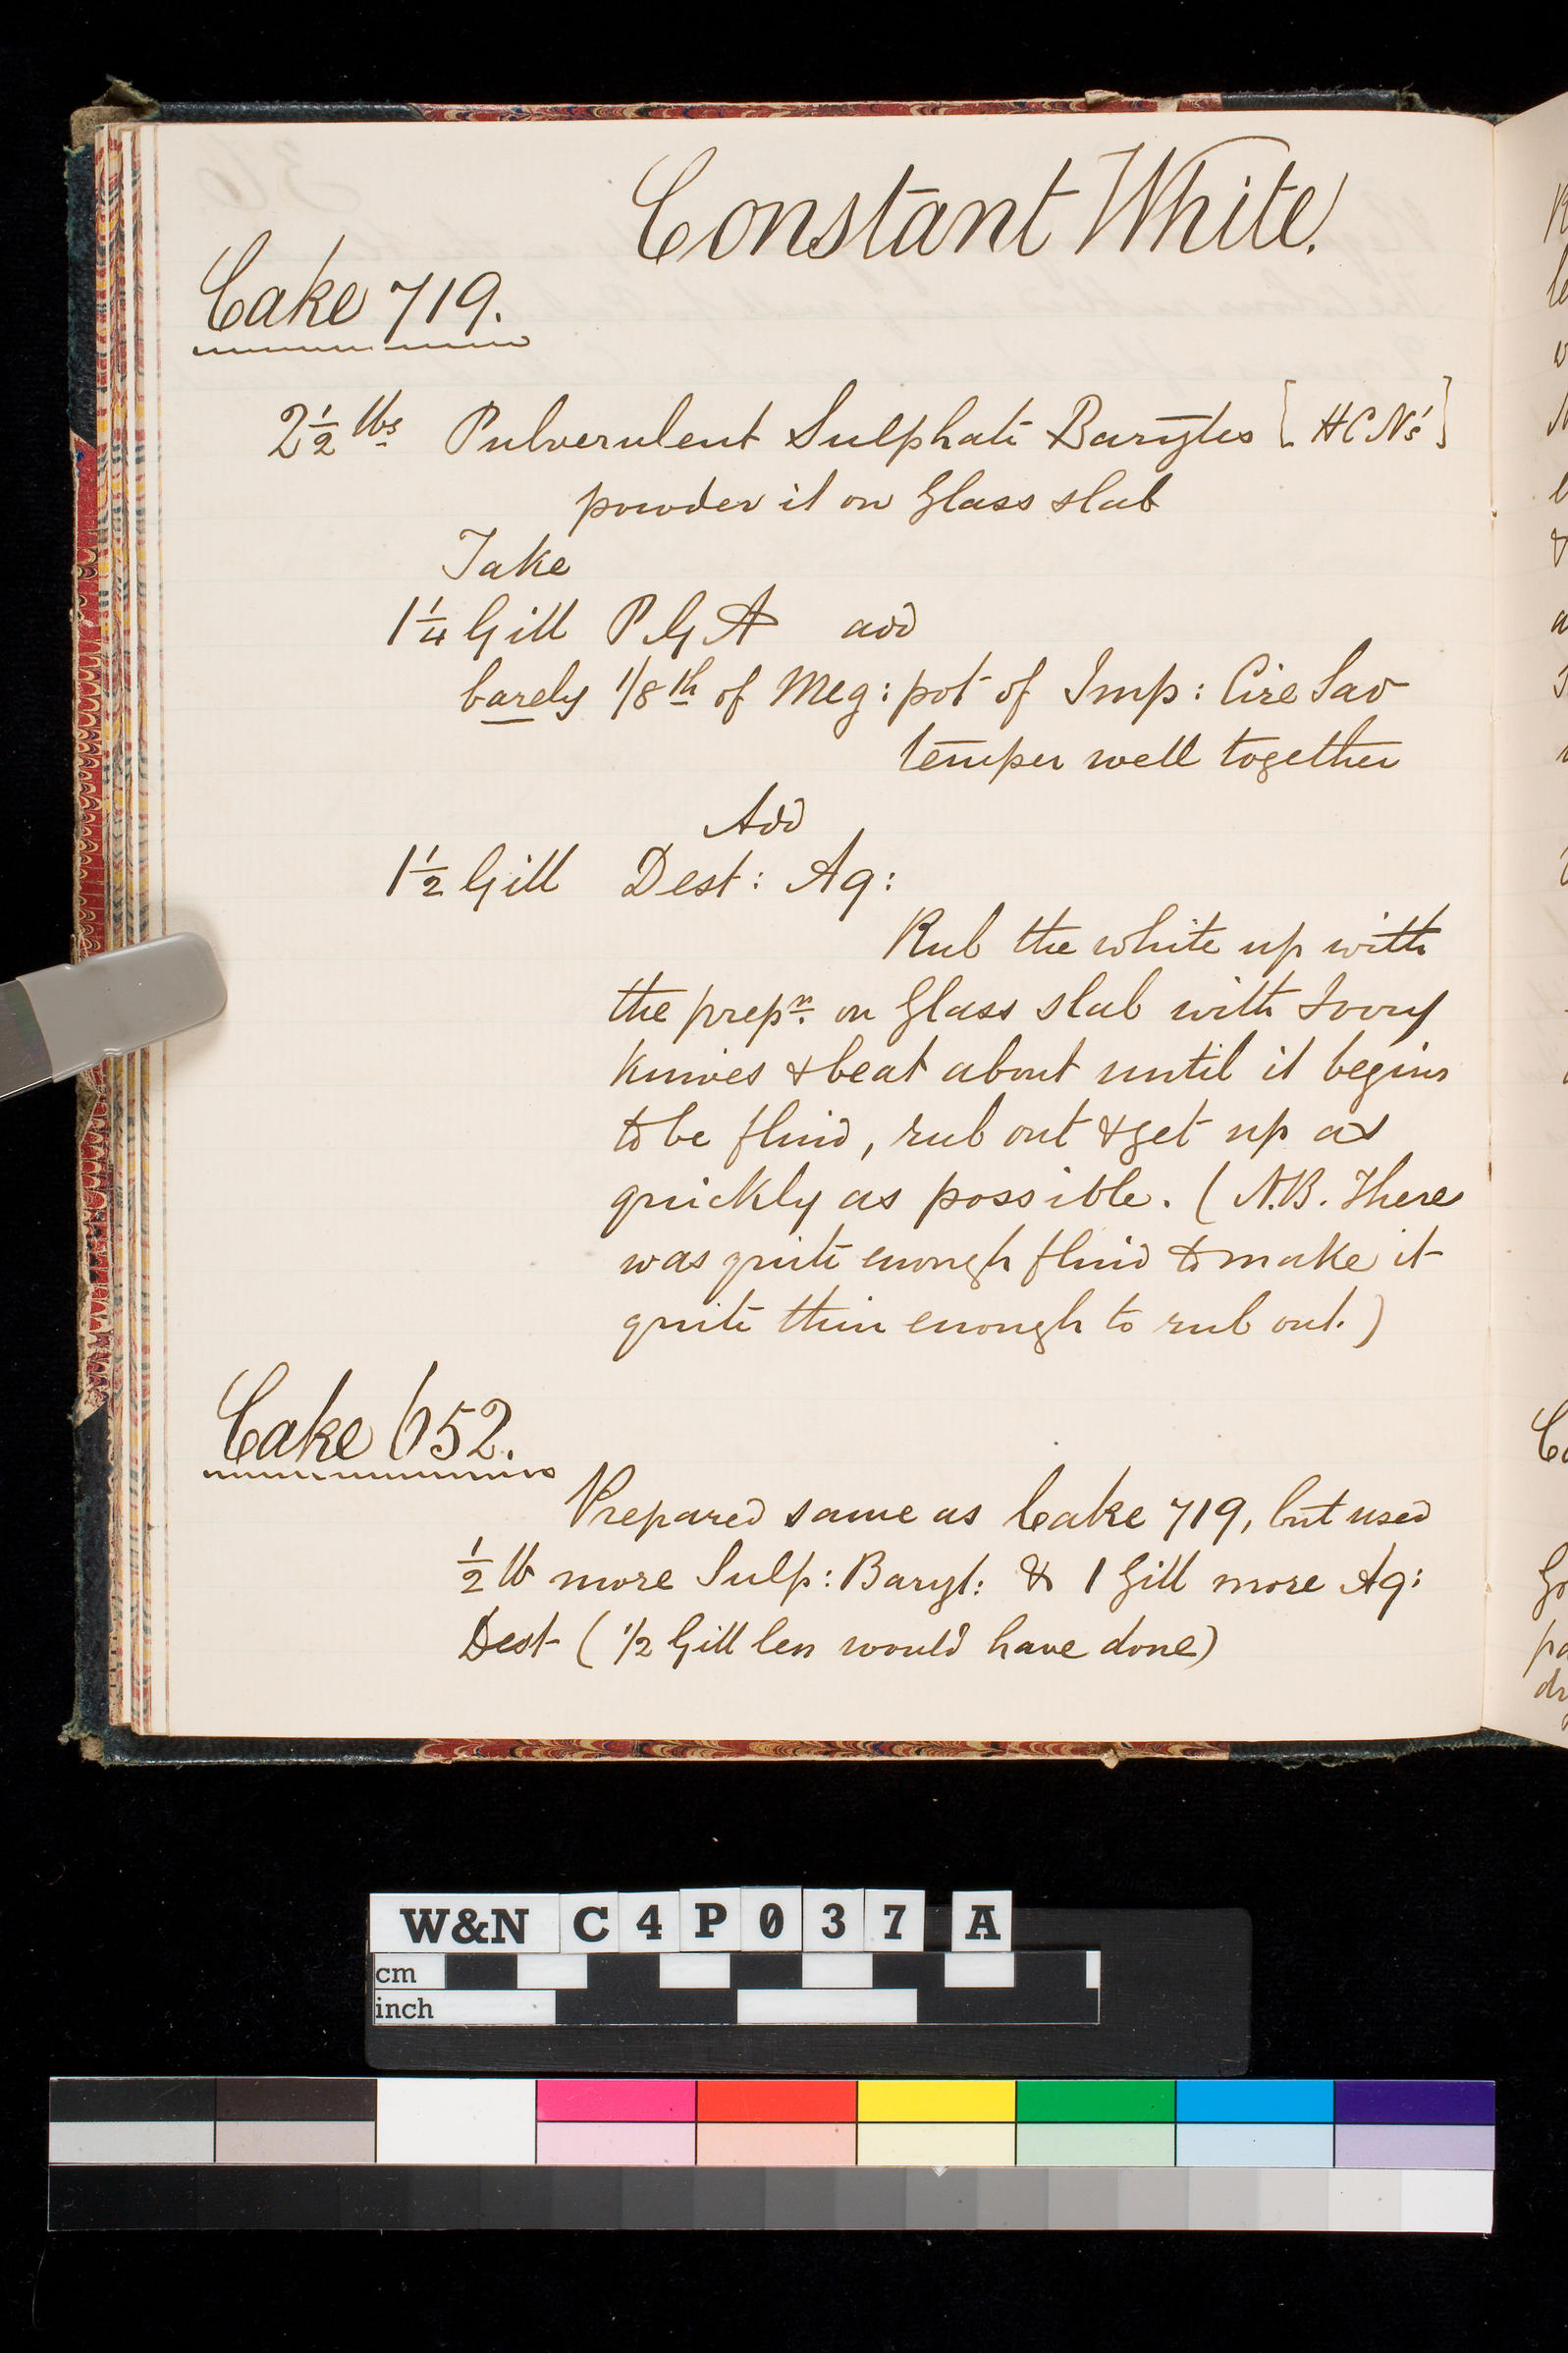 Constant White.
Cake 719.
2 1/2 lbs Pulverulent Sulphate Barytes [HCN's]
powder it on Glass slab
Take
1 1/4 Gill P G A add
barely 1/8th of Meg: pot of Imp: Cire Sav
temper well together
Add
1 1/2 Gill Dest: Aq:
Rub the white up with
the prepn. on Glass slab with Ivory
knives & beat about until it begins
to be fluid, rub out & get up as
quickly as possible. (N.B. There
was quite enough fluid to make it
quite thin enough to rub out.)
Cake 652.
Prepared same as Cake 719, but used
1/2 lb more Sulp: Baryt: & 1 Gill more Aq:
Dest (1/2 Gill less would have done)
W&N C4P037 A
cm
inch